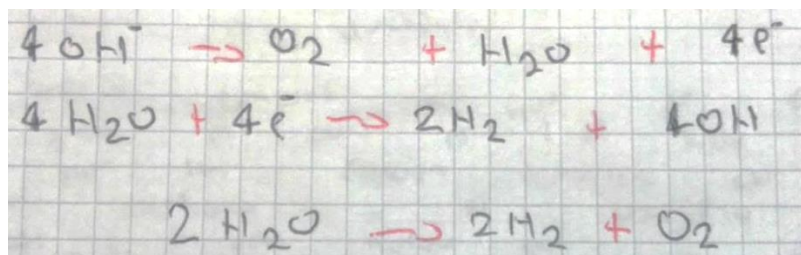 4 OH⁻ → O₂ + H₂O + 4e⁻
4 H₂O + 4e⁻ → 2H₂ + 4OH
2 H₂O → 2H₂ + O₂